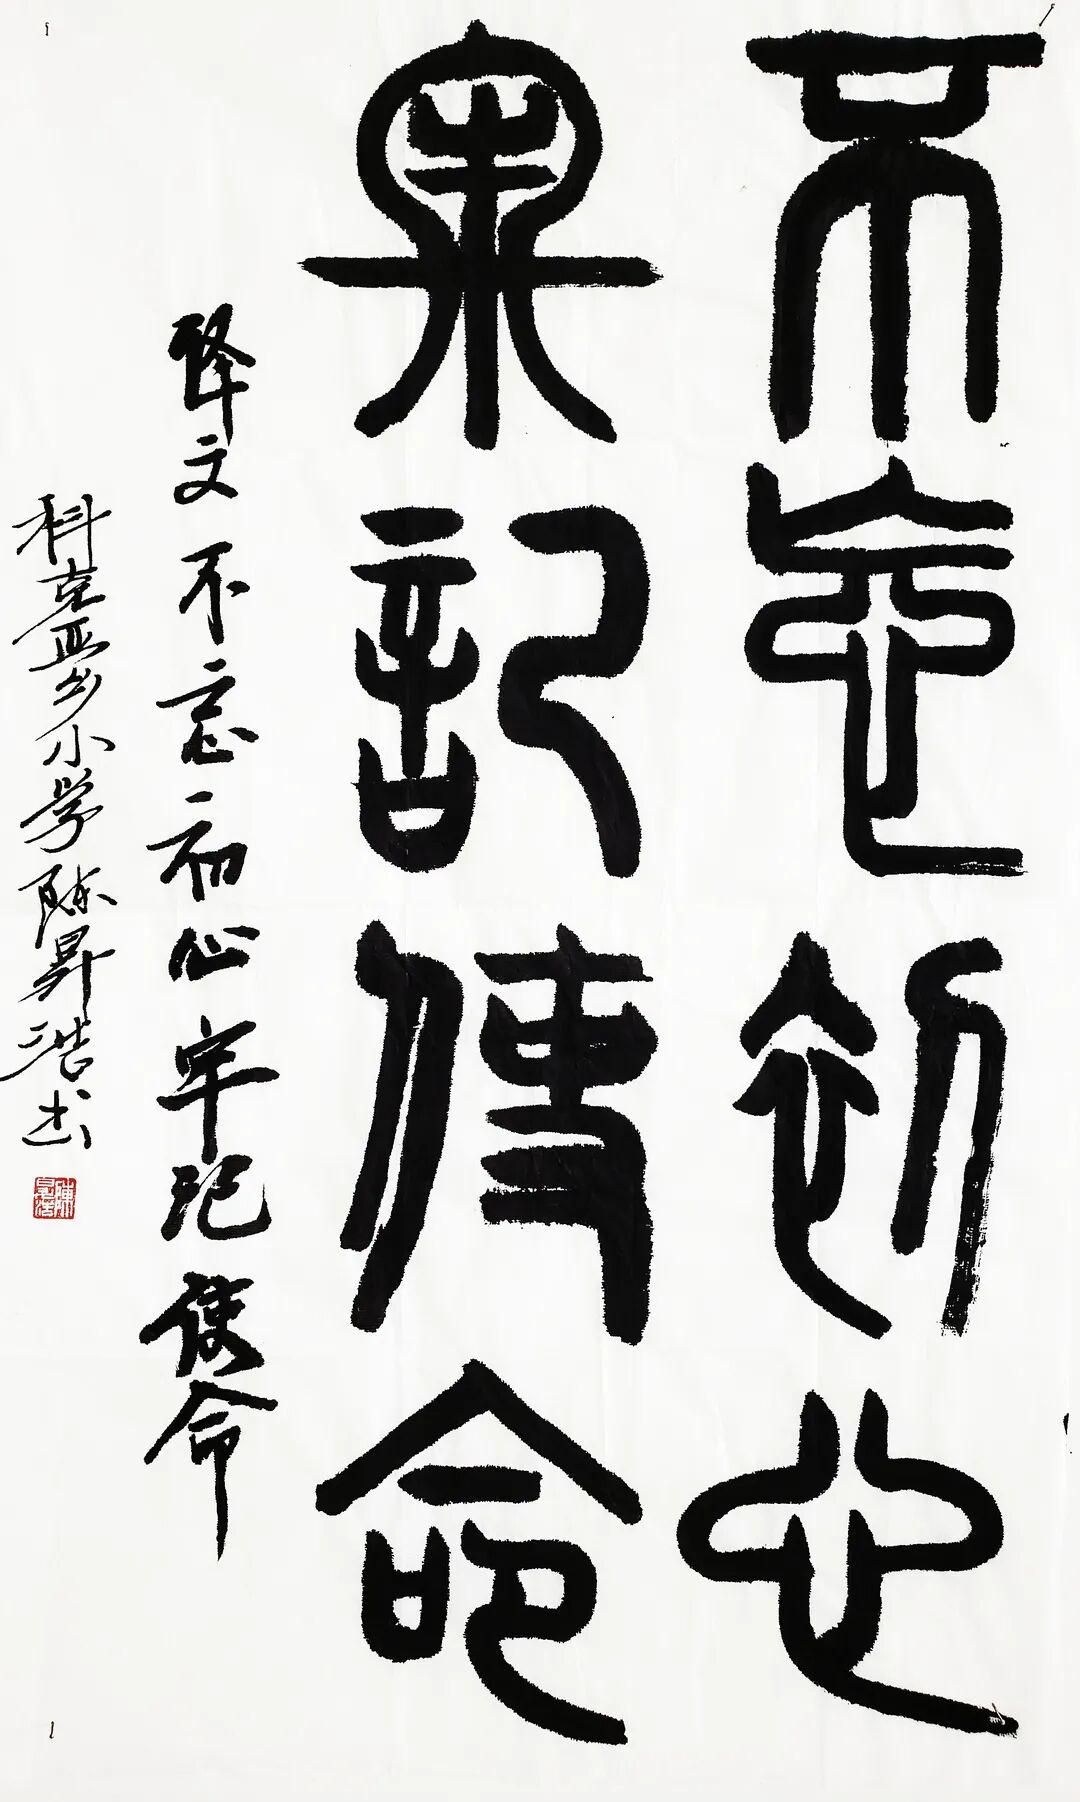 不忘初心
牢记使命
释文不忘初心牢记使命
科克亚乡小学陈昇浩书